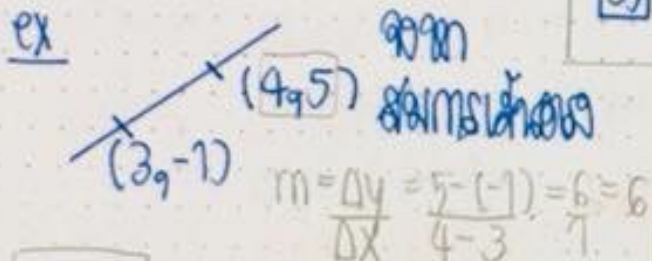 ex
(4,5)
(3,-1)
จงหา
สมการเส้นตรง
m = Δy/Δx = 5-(-1)/4-3 = 6/1 = 6